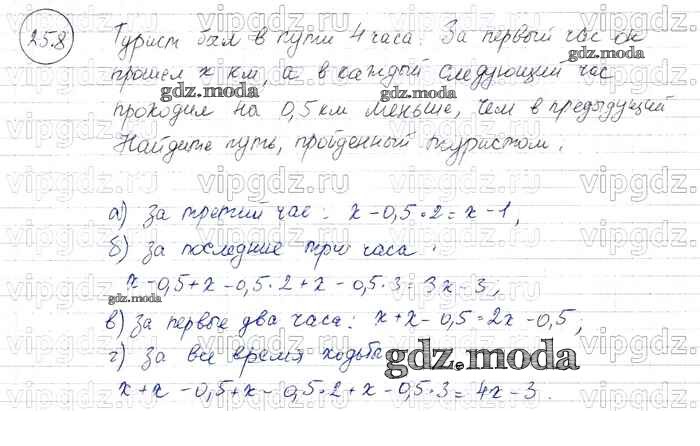 258
Турист был в пути 4 часа. За первый час он
прошел x км, а в каждый следующий час
проходил на 0,5 км меньше, чем в предыдущий
Найдите путь, пройденный туристом.
а) За третий час: x - 0,5 · 2 = x - 1,
б) За последние три часа:
x - 0,5 + x - 0,5 · 2 + x - 0,5 · 3 = 3x - 3,
в) За первые два часа: x + x - 0,5 = 2x - 0,5;
г) За все время ходьбы
x + x - 0,5 + x - 0,5 · 2 + x - 0,5 · 3 = 4x - 3.
gdz.moda
vipgdz.ru